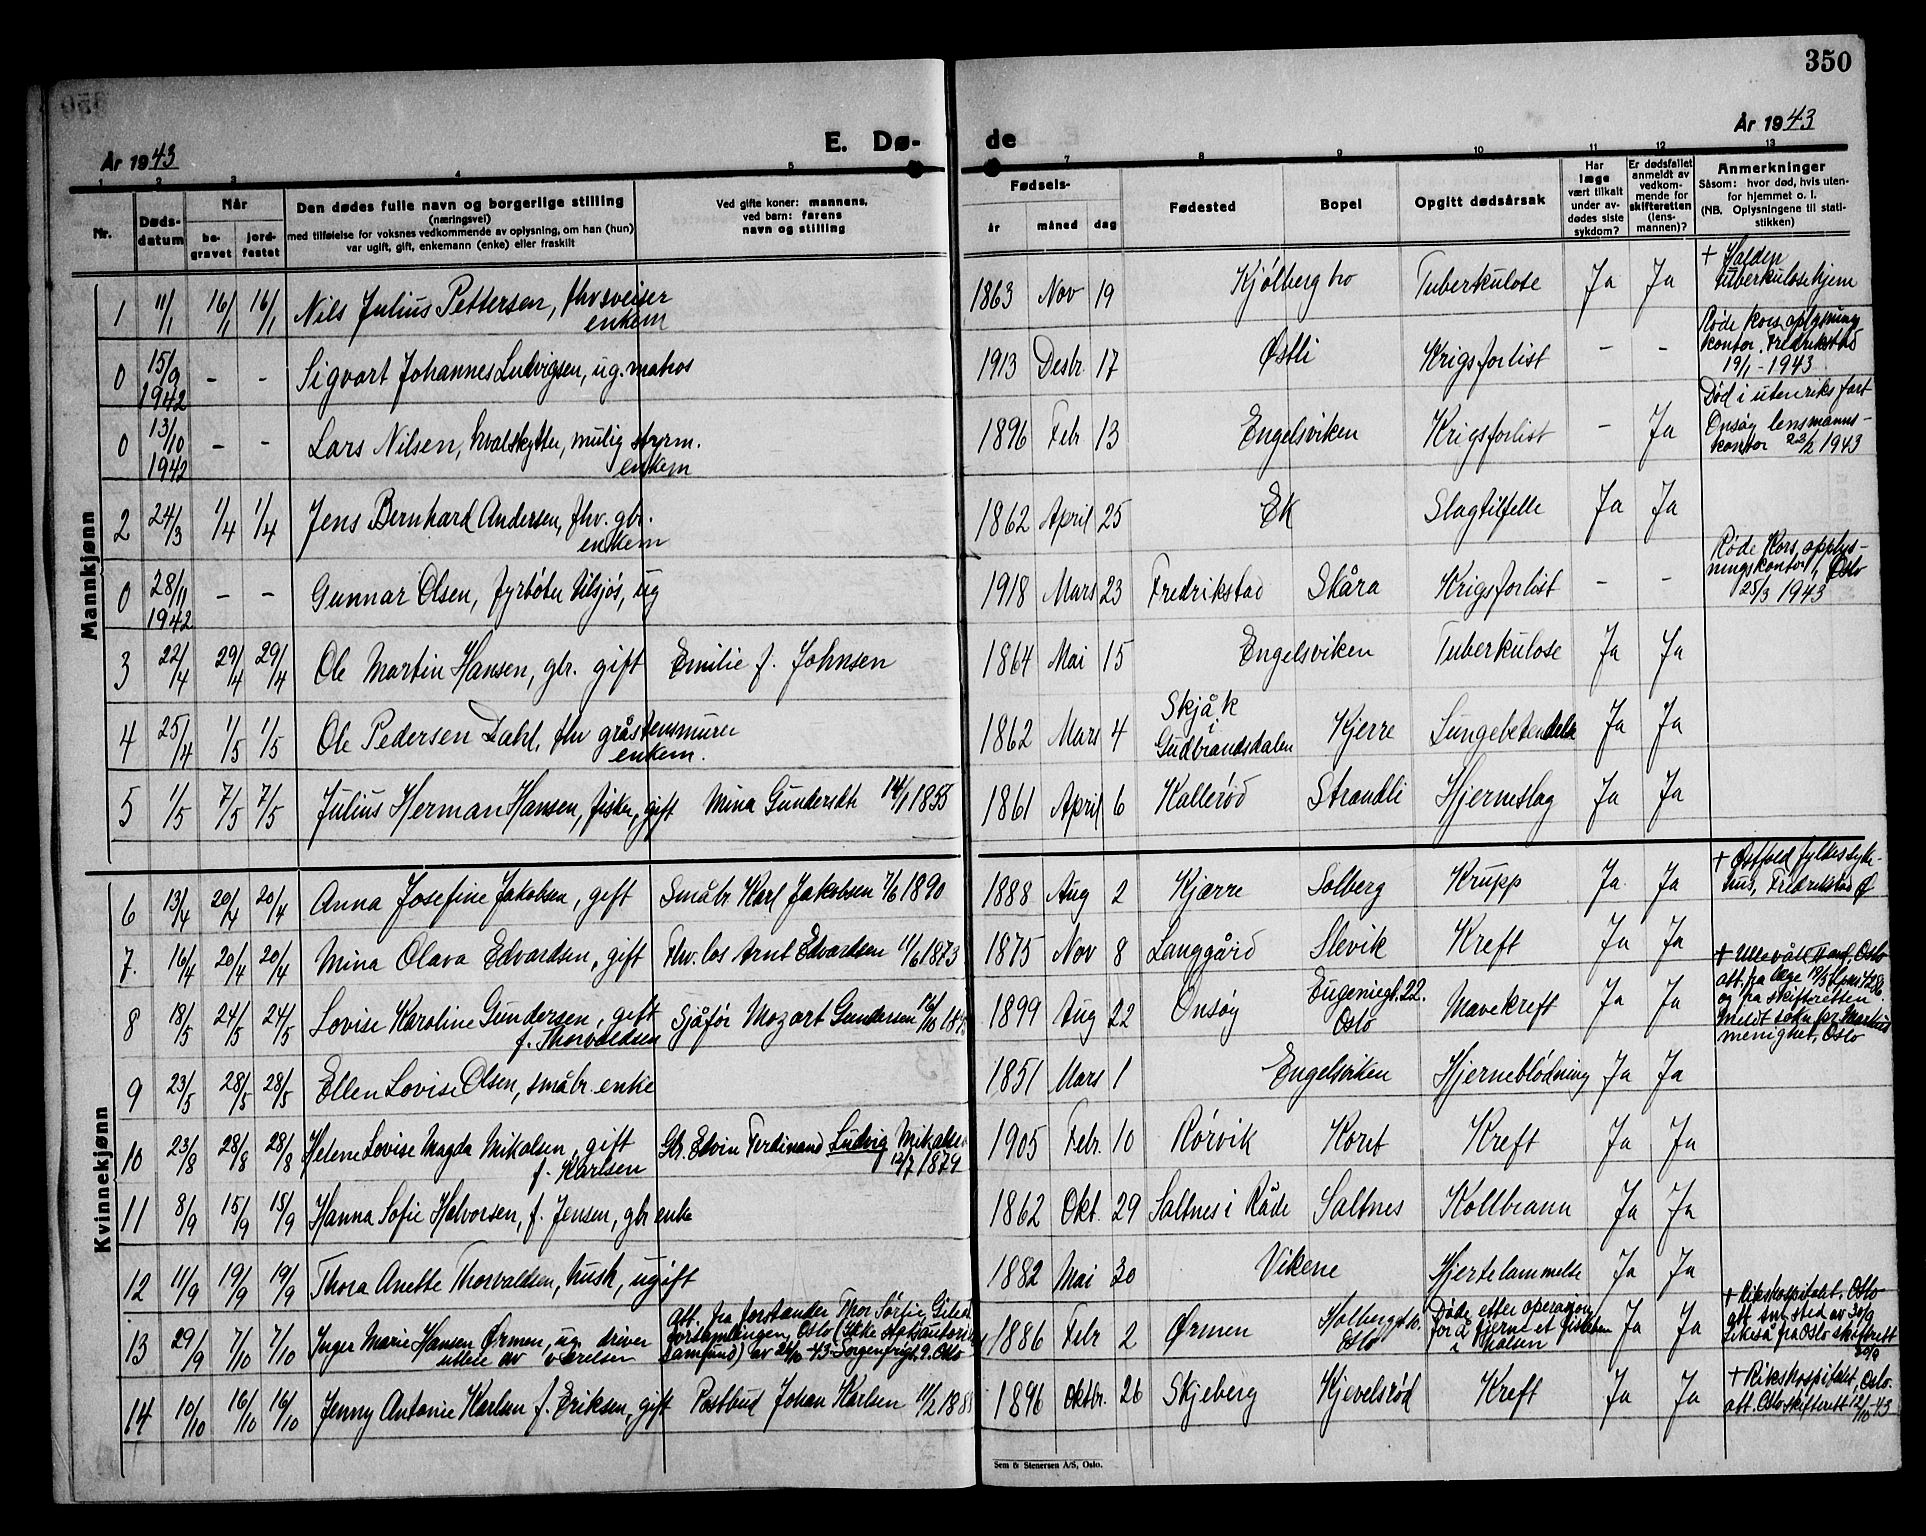 350
År 1943
E. Dø-
de
År 1943
1 2 3 4 5 7 8 9 10 11 12 13
Nr.
Døds-
datum
Når
be-
gravet
jord-
festet
Den dødes fulle navn og borgerlige stilling
(næringsvei)
med tilføielse for voksnes vedkommende av oplysning, om han (hun)
var ugift, gift, enkemann (enke) eller fraskilt
Ved gifte koner: mannens,
ved barn: farens
navn og stilling
Fødsels-
år måned dag
Fødested
Bopel
Opgitt dødsårsak
Har
læge
vært tilkalt
under av-
dødes siste
sykdom?
Er dødsfallet
anmeldt av
vedkom-
mende for
skifteretten
(lens-
mannen)?
Anmerkninger
Såsom: hvor død, hvis uten-
for hjemmet o. l.
(NB. Oplysningene til stati-
stikken)
Mannkjønn
1 11/1 16/1 16/1 Nils Julius Pettersen, fhv sveiser
enkem
1863 Nov 19 Kjølberg bro Tuberkulose Ja Ja
+ Halden
tuberkulosehjem
0 15/9
1942 - - Sigvart Johannes Ludvigsen, ug. matros
1913 Desbr. 17 Østli Krigsforlist - -
Røde Kors oplysning
kontor, Fredrikstad
19/1 - 1943
0 13/10
1942 - - Lars Nilsen, hvalskytter, mulig styrm.
enkem
1896 Febr 13 Engelsviken Krigsforlist - Ja
Død i utenriks fart
Onsøy lensmanns-
kontor 23/2 1943
2 24/3 1/4 1/4 Jens Bernhard Andersen, fhv. gbr.
enkem
1862 April 25 Ek Slagtilfelle Ja Ja
0 28/11
1942 - - Gunnar Olsen, fyrbøter tilsjøs, ug
1918 Mars 23 Fredrikstad Skåra Krigsforlist - -
Røde Kors, opplys-
ningskontor, Oslo
25/3 1943
3 22/4 29/4 29/4 Ole Martin Hansen, gbr. gift Emilie f. Johnsen
1864 Mai 15 Engelsviken Tuberkulose Ja Ja
4 25/4 1/5 1/5 Ole Pedersen Dahl, fhv gråstensmurer
enkem.
1862 Mars 4 Skjåk
i
Gudbrandsdalen Kjerre Lungebetendelse Ja Ja
5 1/5 7/5 7/5 Julius Herman Hansen, fisker, gift Mina Gundersdtr 14/1 1855
1861 April 6 Kallerød Strandli Hjerneslag Ja Ja
Kvinnekjønn
6 13/4 20/4 20/4 Anna Josefine Jakobsen, gift Småbr Karl Jakobsen 7/6 1890
1888 Aug 2 Kjærre Solberg Krupp Ja Ja
+ Østfold fylkessyke-
hus, Fredrikstad Ø
7. 16/4 20/4 20/4 Mina Olava Edvardsen, gift Fhv. los Arnt Edvardsen 11/6 1873
1875 Nov 8 Langgård Slevik Kreft Ja Ja
8 18/5 24/5 24/5 Lovise Karoline Gundersen, gift
f. Thorvaldsen Sjåfør Mozart Gundersen 16/10
1899 Aug 22 Onsøy Eugeniegt. 22.
Oslo Mavekreft Ja Ja
+ Ullevål Oslo
att. fra læge 19/5
og fra skifteretten
Meldt sokn pr Markus
menighet, Oslo
9 23/5 28/5 28/5 Ellen Lovise Olsen, småbr. enke
1851 Mars 1 Engelsviken Hjerneblødning Ja Ja
10 23/8 28/8 28/8 Helene Lovise Magda Mikalsen, gift
f. Karlsen Gbr. Edvin Ferdinand Ludvig Mikalsen
12/7 1879
1905 Febr. 10 Rørvik Koret Kreft Ja Ja
11 8/9 15/9 15/9 Hanna Sofie Halvorsen, f. Jensen, gbr enke
1862 Okt. 29 Saltnes i Råde Saltnes Kollbrann Ja Ja
12 11/9 19/9 19/9 Thora Anette Thorvaldsen, hush., ugift
1882 Mai 30 Vikene Hjertelammelse Ja Ja
13 29/9 7/10 7/10 Inger Marie Hansen Ørmen, ug. driver
utleie av værelser
Att. fra forstander Thor Sørlie Gilead
forsamlingen, Oslo (Ikke
samfund) av 26/10 -43 Sorgenfrigt. 9. Oslo
1886 Febr 2 Ørmen Holbergsgt.
Oslo Døde etter operasjon
for å fjerne et fiskeben
i halsen Ja Ja
+ Rikshospitalet, Oslo
att sm. sted av 30/9
likeså fra Oslo skifterett
30/9
14 10/10 16/10 16/10 Jenny Antonie Karlsen f. Eriksen, gift Postbud Johan Karlsen 11/2 188
1896 Oktbr. 26 Skjeberg Kjevelsrød Kreft Ja Ja
+ Rikshospitalet, Oslo.
att. Oslo skifterett 12/10 -43
Sem & Stenersen A/S, Oslo.